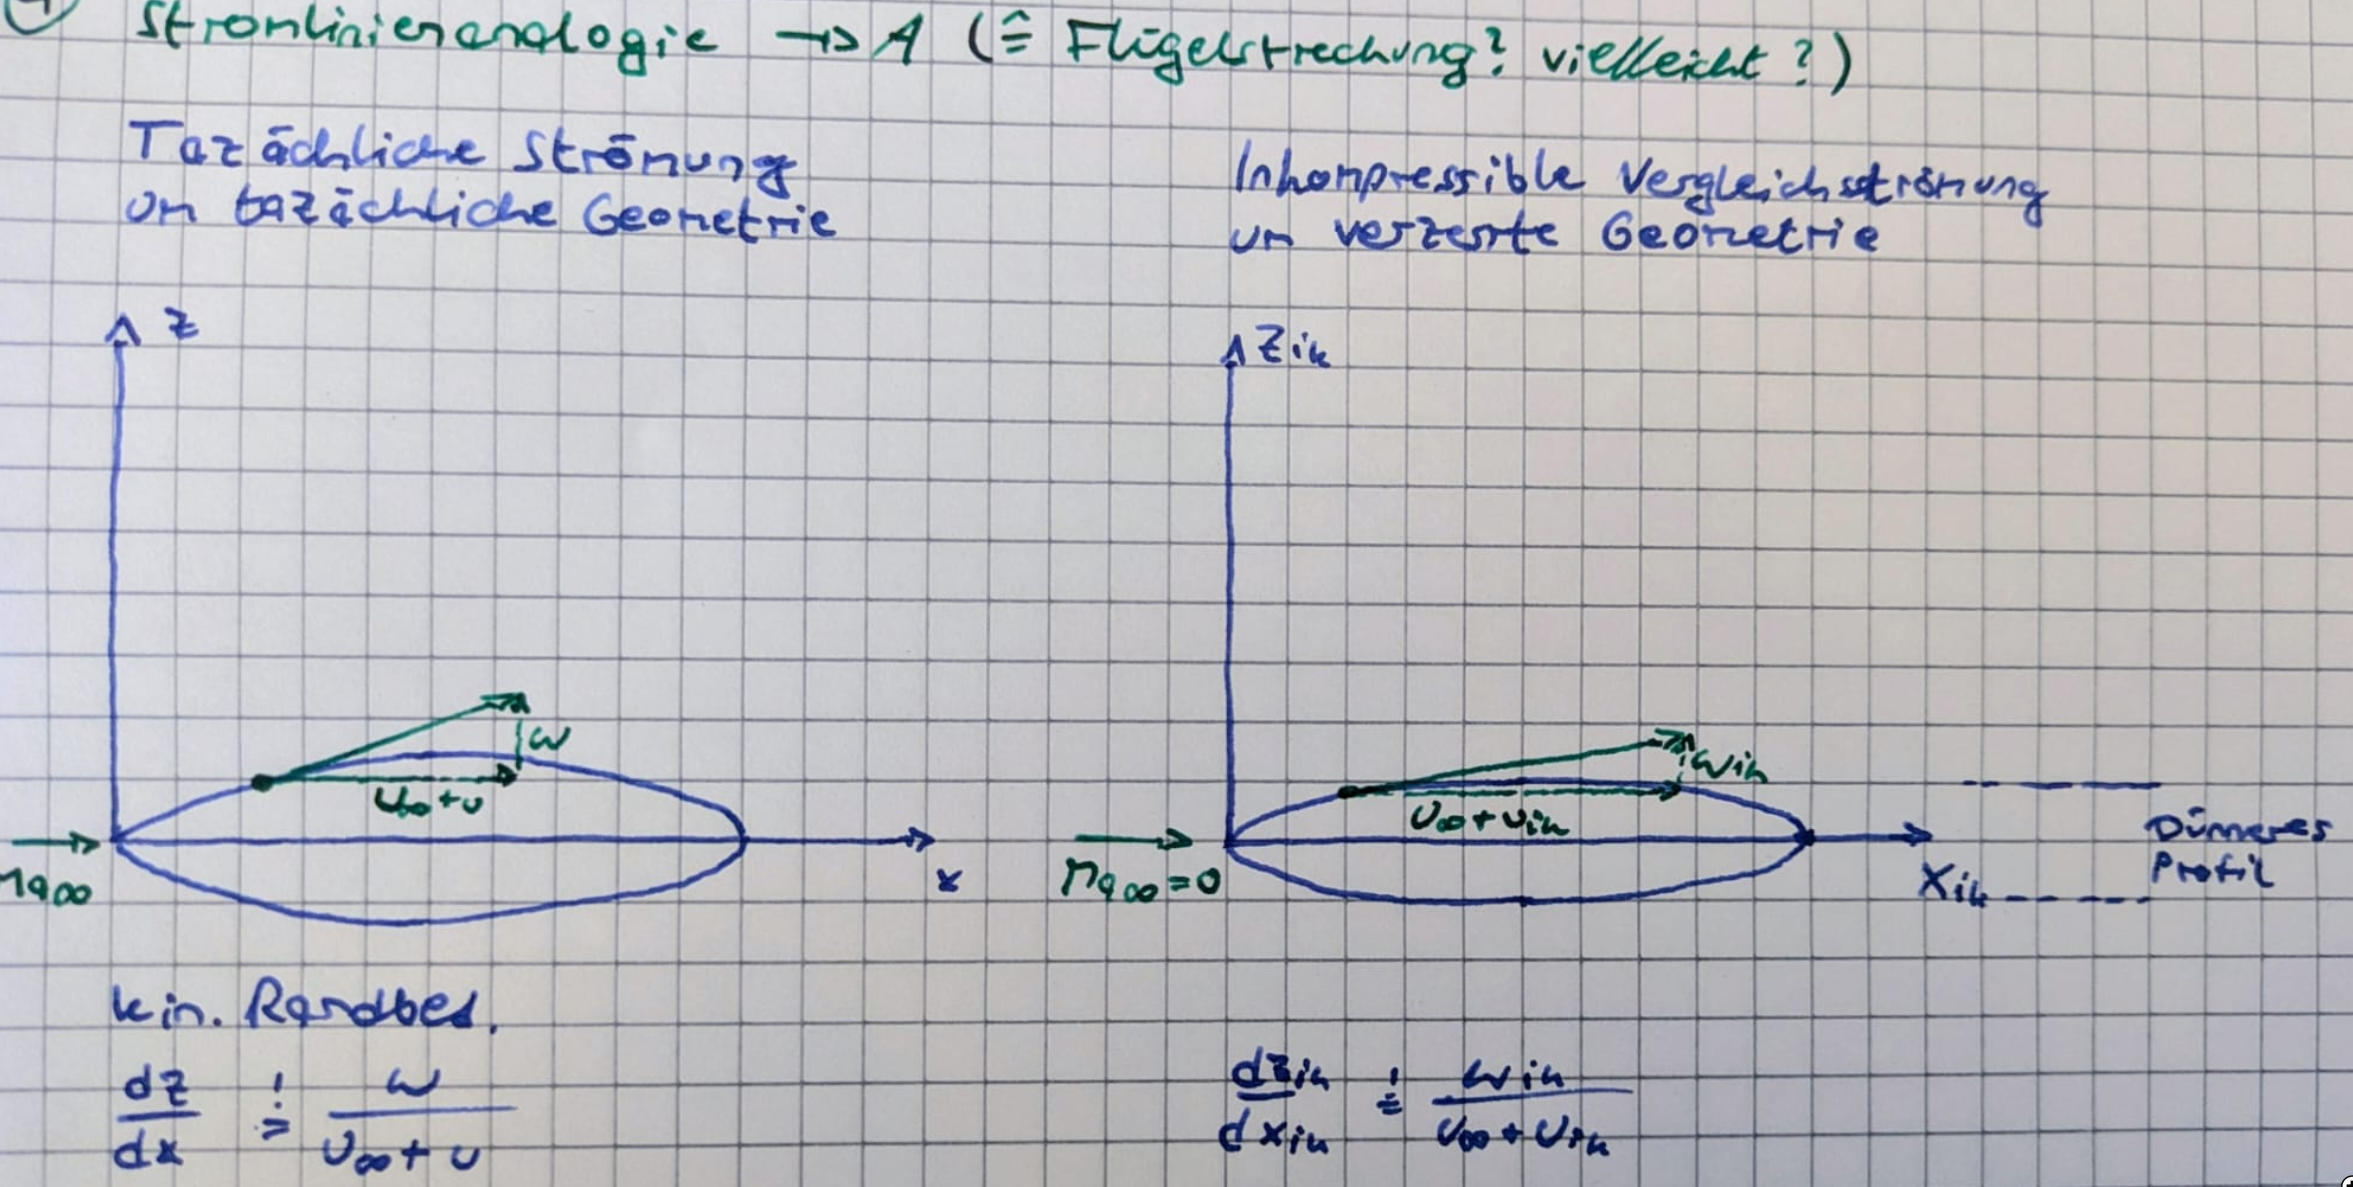 Stromlinienanalogie → A (≙ Flügelstreckung? vielleicht?)
Tazächliche Strömung
um tazächliche Geometrie
Inkompressible Vergleichsströmung
um verzerrte Geometrie
z
Zik
w
U∞+u
Ma∞
x
wik
U∞+uik
Ma∞=0
Xik
Dünneres
Profil
kin. Randbed.
dz/dx =! w/(U∞+u)
dzik/dxik =! wik/(U∞+uik)